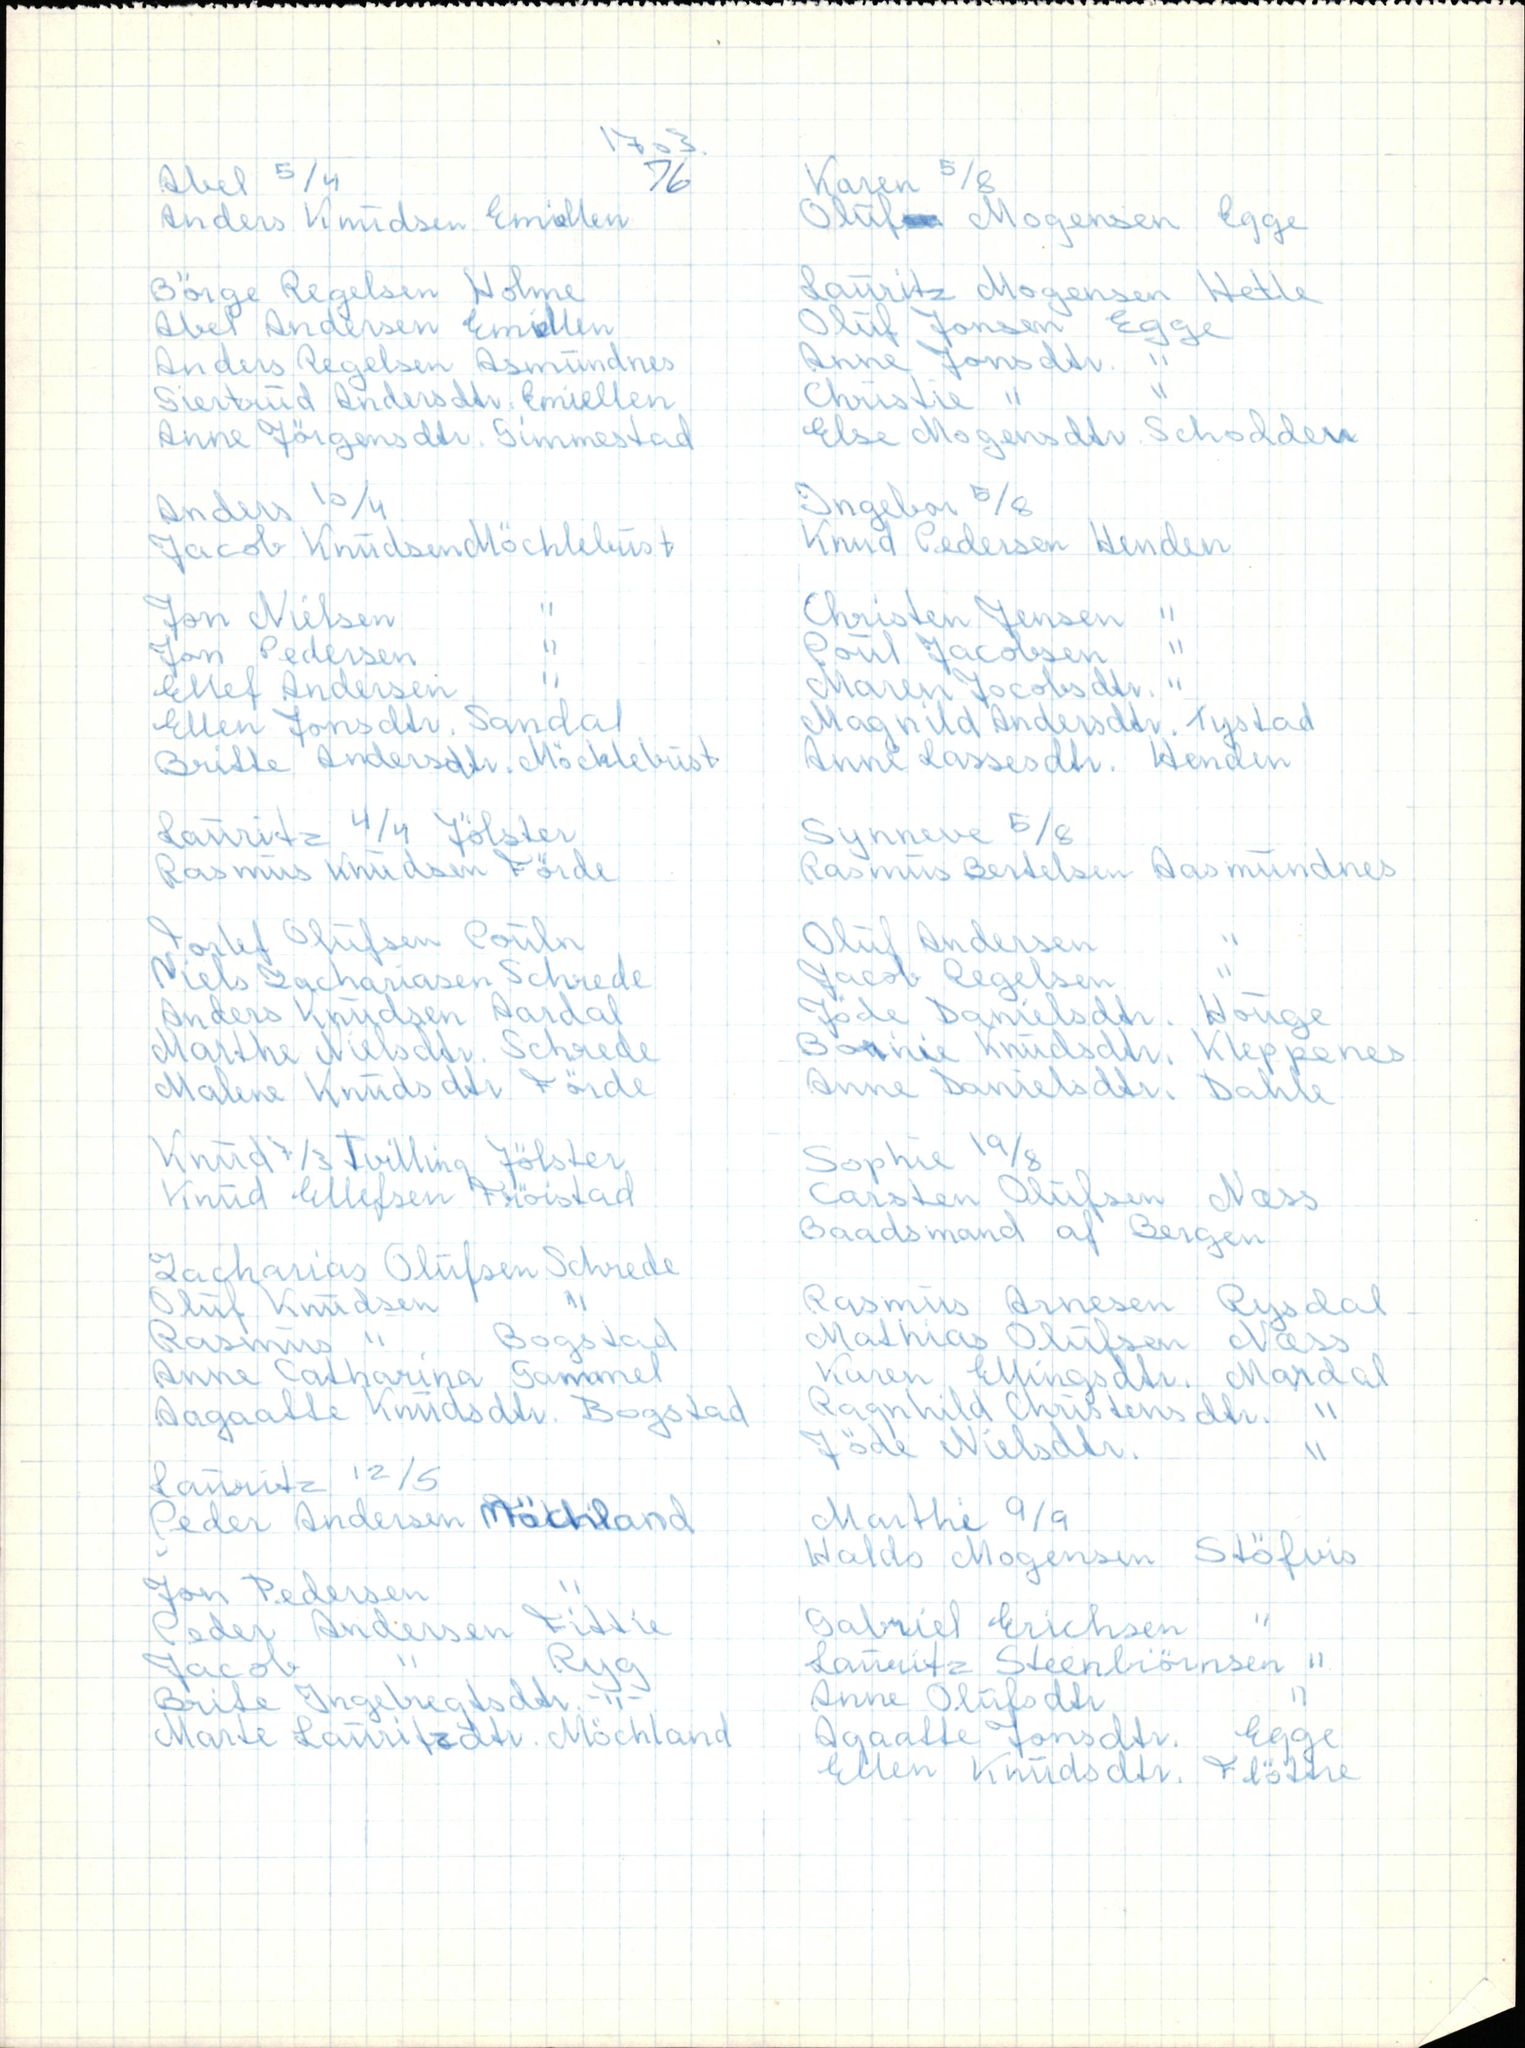 1703.
76
Abel 5/4
Anders Knudsen Emiellen
Börge Regelsen Holme
Abel Andersen Emiellen
Anders Regelsen Asmundnes
Siertrud Andersdtr. Emiellen
Anne Jörgensdtr. Gimmestad
Anders 10/4
Jacob Knudsen Möchlebust
Jon Nielsen "
Jon Pedersen "
Ellef Andersen "
Ellen Jonsdtr. Sandal
Britte Andersdtr. Möcklebust
Lauritz 4/4 Jölster
Rasmus Knudsen Förde
Torlef Olufsen Pouln
Niels Zachariasen Schrede
Anders Knudsen Aardal
Marthe Nielsdtr. Schrede
Malene Knudsdtr Förde
Knud 7/3 Tvilling Jölster
Knud Ellefsen Fröistad
Zacharias Olufsen Schrede
Oluf Knudsen "
Rasmus " Bogstad
Anne Catharina Gammel
Aagaatte Knudsdtr. Bogstad
Lauritz 12/5
Peder Andersen Möchland
Jon Pedersen "
Peder Andersen Fittie
Jacob " Ryg
Brite Ingebregtsdtr. -"-
Marte Lauritzdtr. Möchland
Karen 5/8
Oluf Mogensen Egge
Lauritz Mogensen Hetle
Oluf Jonsen Egge
Anne Jonsdtr. "
Christie " "
Else Mogensdtr. Schodden
Ingebor 5/8
Knud Pedersen Henden
Christen Jensen "
Poul Jacobsen "
Maren Jocobsdtr. "
Magnild Andersdtr. Tystad
Anne Lassesdtr. Henden
Synneve 5/8
Rasmus Bertelsen Aasmundnes
Oluf Andersen "
Jacob Regelsen "
Jöde Danielsdtr. Houge
Knudsdtr. Kleppenes
Anne Danielsdtr. Dahle
Sophie 19/8
Carsten Olufsen Næss
Baadsmand af Bergen
Rasmus Arnesen Rysdal
Mathias Olufsen Næss
Karen Ellingsdtr. Mardal
Ragnhild Christensdtr. "
Jöde Nielsdtr. "
Marthe 9/9
Haldo Mogensen Stöfvis
Gabriel Erichsen "
Lauritz Steenbiörnsen "
Anne Olufsdtr "
Agaatte Jonsdtr. Egge
Ellen Knudsdtr. Flöttre